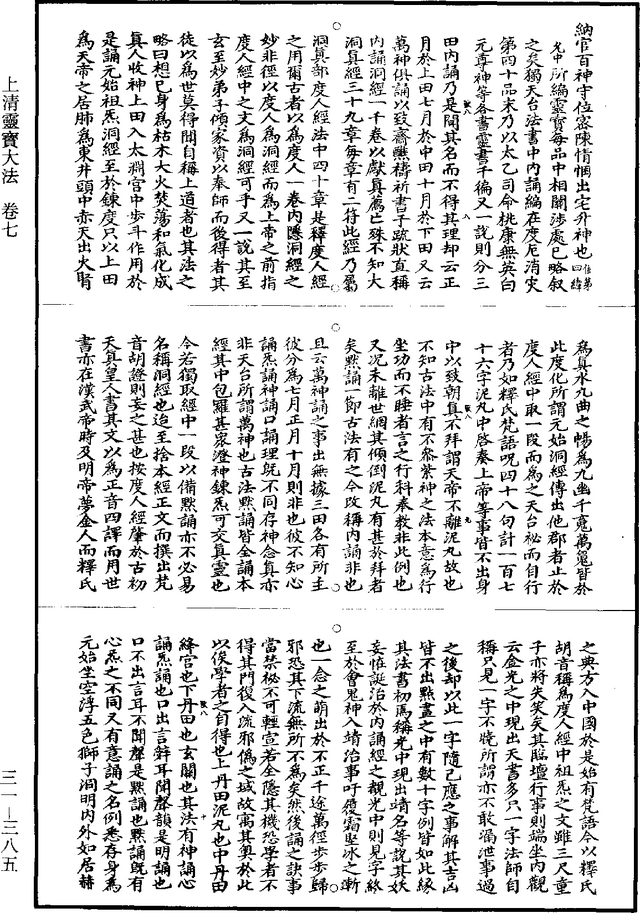 納官百神守位密陳情悃出宅升神也
光中所編靈寶每品中相關涉處已略叙
之矣獨天台法書中内誦編在度厄消灾
第四十品末乃以太乙司命桃康無英白
元尊神等各書靈書千徧又一說則分三
田内誦乃是聞其名而不得其理却云正
月於上田七月於中田十月於下田又云
萬神俱誦以致齋醮禱祈書于疏狀直稱
内誦洞經一千卷以獻真薦亡殊不知大
洞真經三十九章每章有二符此經乃屬
洞真部度人經法中四十章是釋度人經
之用爾古者以為度人一卷内隱洞經之
妙非徑以度人為洞經而為上帝之前指
度人經中之文為洞經可乎又一說其至
玄至妙弟子傾家資以奉師而後得者其
徒以為世莫得聞自稱上道者也其法之
略曰想已身為枯木大火焚蕩和氣化成
真人收神上田入太淵宫中步斗作用於
是誦元始祖炁洞經至於鍊度只以上田
為天帝之居肺為東井頭中赤天出火腎
為真水九曲之暢為九幽千竟萬鬼皆於
此度化所謂元始洞經傳出他郡者止於
度人經中取一段而為之天台秘而自行
者乃如釋氏梵語呪四十八句計一百七
十六字泥丸中啓奏上帝等事皆不出身
中以致朝真不拜謂天帝不離泥丸故也
不知古法中有不忝紫神之法本意為行
坐功而不睡者言之行科奉教非此例也
又况未離世網其傾倒泥丸有甚於拜者
矣黙誦一節古法有之今改稱内誦非也
且云萬神誦之事出無據三田各有所主
彼分為七月正月十月則非也彼不知心
誦炁誦神誦口誦理既不同存神念真亦
非天台所謂萬神也古法黙誦皆全誦本
經其中包羅甚衆澄神鍊炁可交真靈也
今若獨取經中一段以備黙誦亦不必易
名稱洞經也迨至捨本經正文而撰出梵
音胡證則妄之甚也按度人經肇於古初
天真皇人書其文以為正音四譯而用世
書亦在漢武帝時及明帝夢金人而釋氏
之典方入中國於是始有梵語今以釋氏
胡音稱為度人經中祖炁之文雖三尺童
子亦將失笑矣其臨壇行事則端坐内觀
云金光之中現出天書多只一字法師自
稱只見一字不曉所謂亦不敢漏泄事過
之後却以此一字隨已應之事解其吉凶
皆不出黙畫之中有數十字例皆如此緣
其法書初焉稱光中現出靖名等說其妖
妄恠誕治於内誦經之觀光中則見字終
至於會鬼神入靖治事吁履霜堅冰之漸
也一念之萌出於不正千途萬徑步步歸
邪恐其下流無所不為矣然後誦之訣事
當禁秘不可輕宣若全隱其機恐學者不
得其門復入流邪僞之域故寓其奥於此
以俟學者之自得也上丹田泥丸也中丹田
絳宫也下丹田也玄關也其法有神誦心
誦炁誦也口出言辭耳聞聲韻是明誦也
口不出言耳不聞聲是黙誦也黙誦既有
心炁之不同又有意誦之名例悉存身為
元始坐空浮五色獅子洞明内外如居赫
上清靈寶大法　卷七
三一—三八五